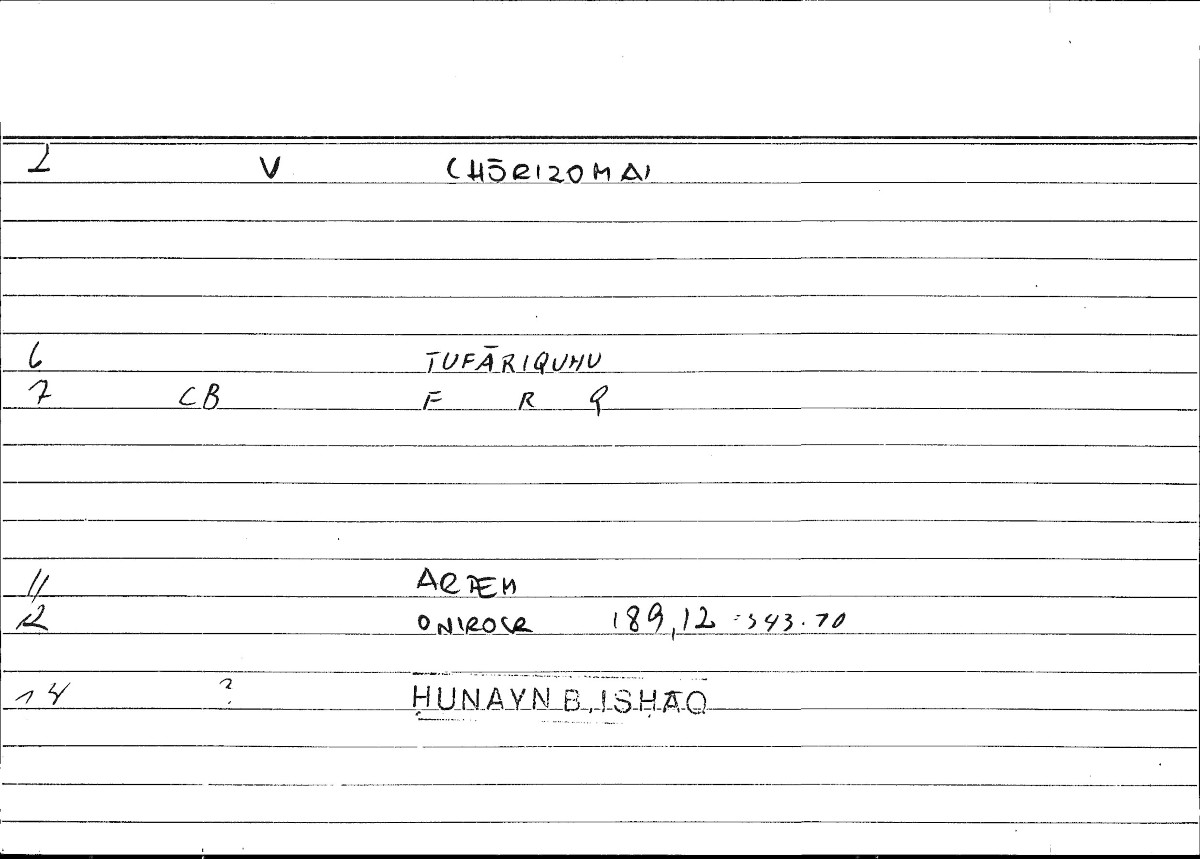 1 V CHŌRIZOMAI
6 TUFĀRIQUHU
7 CB F R Q
11 ARTEM
12 ONIROCR 189,12 =343.70
14 ? ḤUNAYN B. ISḤĀQ